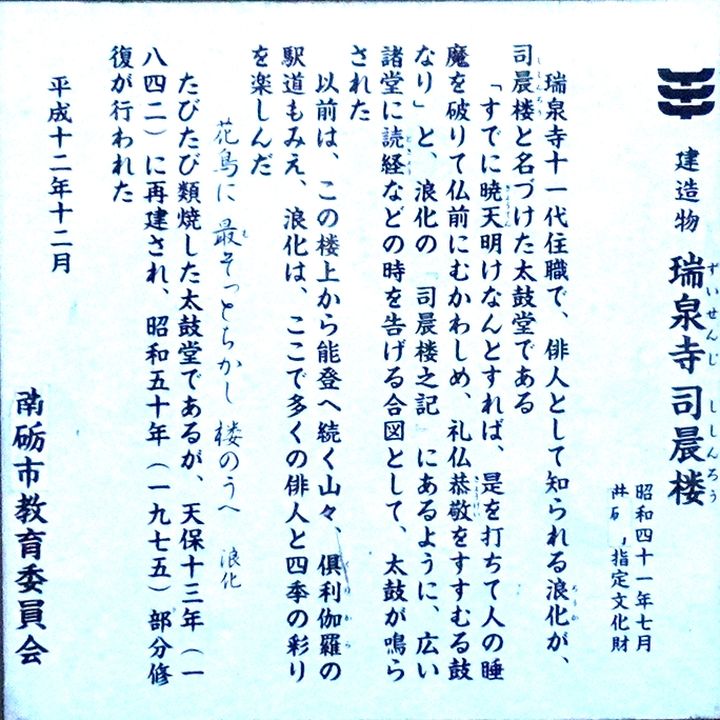 建造物 瑞泉寺 司晨楼
ずいせんじ ししんろう
昭和四十一年七月
指定文化財
瑞泉寺十一代住職で、俳人として知られる浪化が、
ろうか
司晨楼と名づけた太鼓堂である
ししんろう
「すでに暁天明けなんとすれば、是を打ちて人の睡
ぎょうてん
魔を破りて仏前にむかわしめ、礼仏恭敬をすすむる鼓
きょうけい
なり」と、浪化の「司晨楼之記」にあるように、広い
諸堂に読経などの時を告げる合図として、太鼓が鳴ら
どきょう
された
以前は、この楼上から能登へ続く山々、倶利伽羅の
くりから
駅道もみえ、浪化は、ここで多くの俳人と四季の彩り
を楽しんだ
花鳥に 最そっとちかし 楼のうへ 浪化
も
たびたび類焼した太鼓堂であるが、天保十三年（一
八四二）に再建され、昭和五十年（一九七五）部分修
復が行われた
平成十二年十二月
南砺市教育委員会